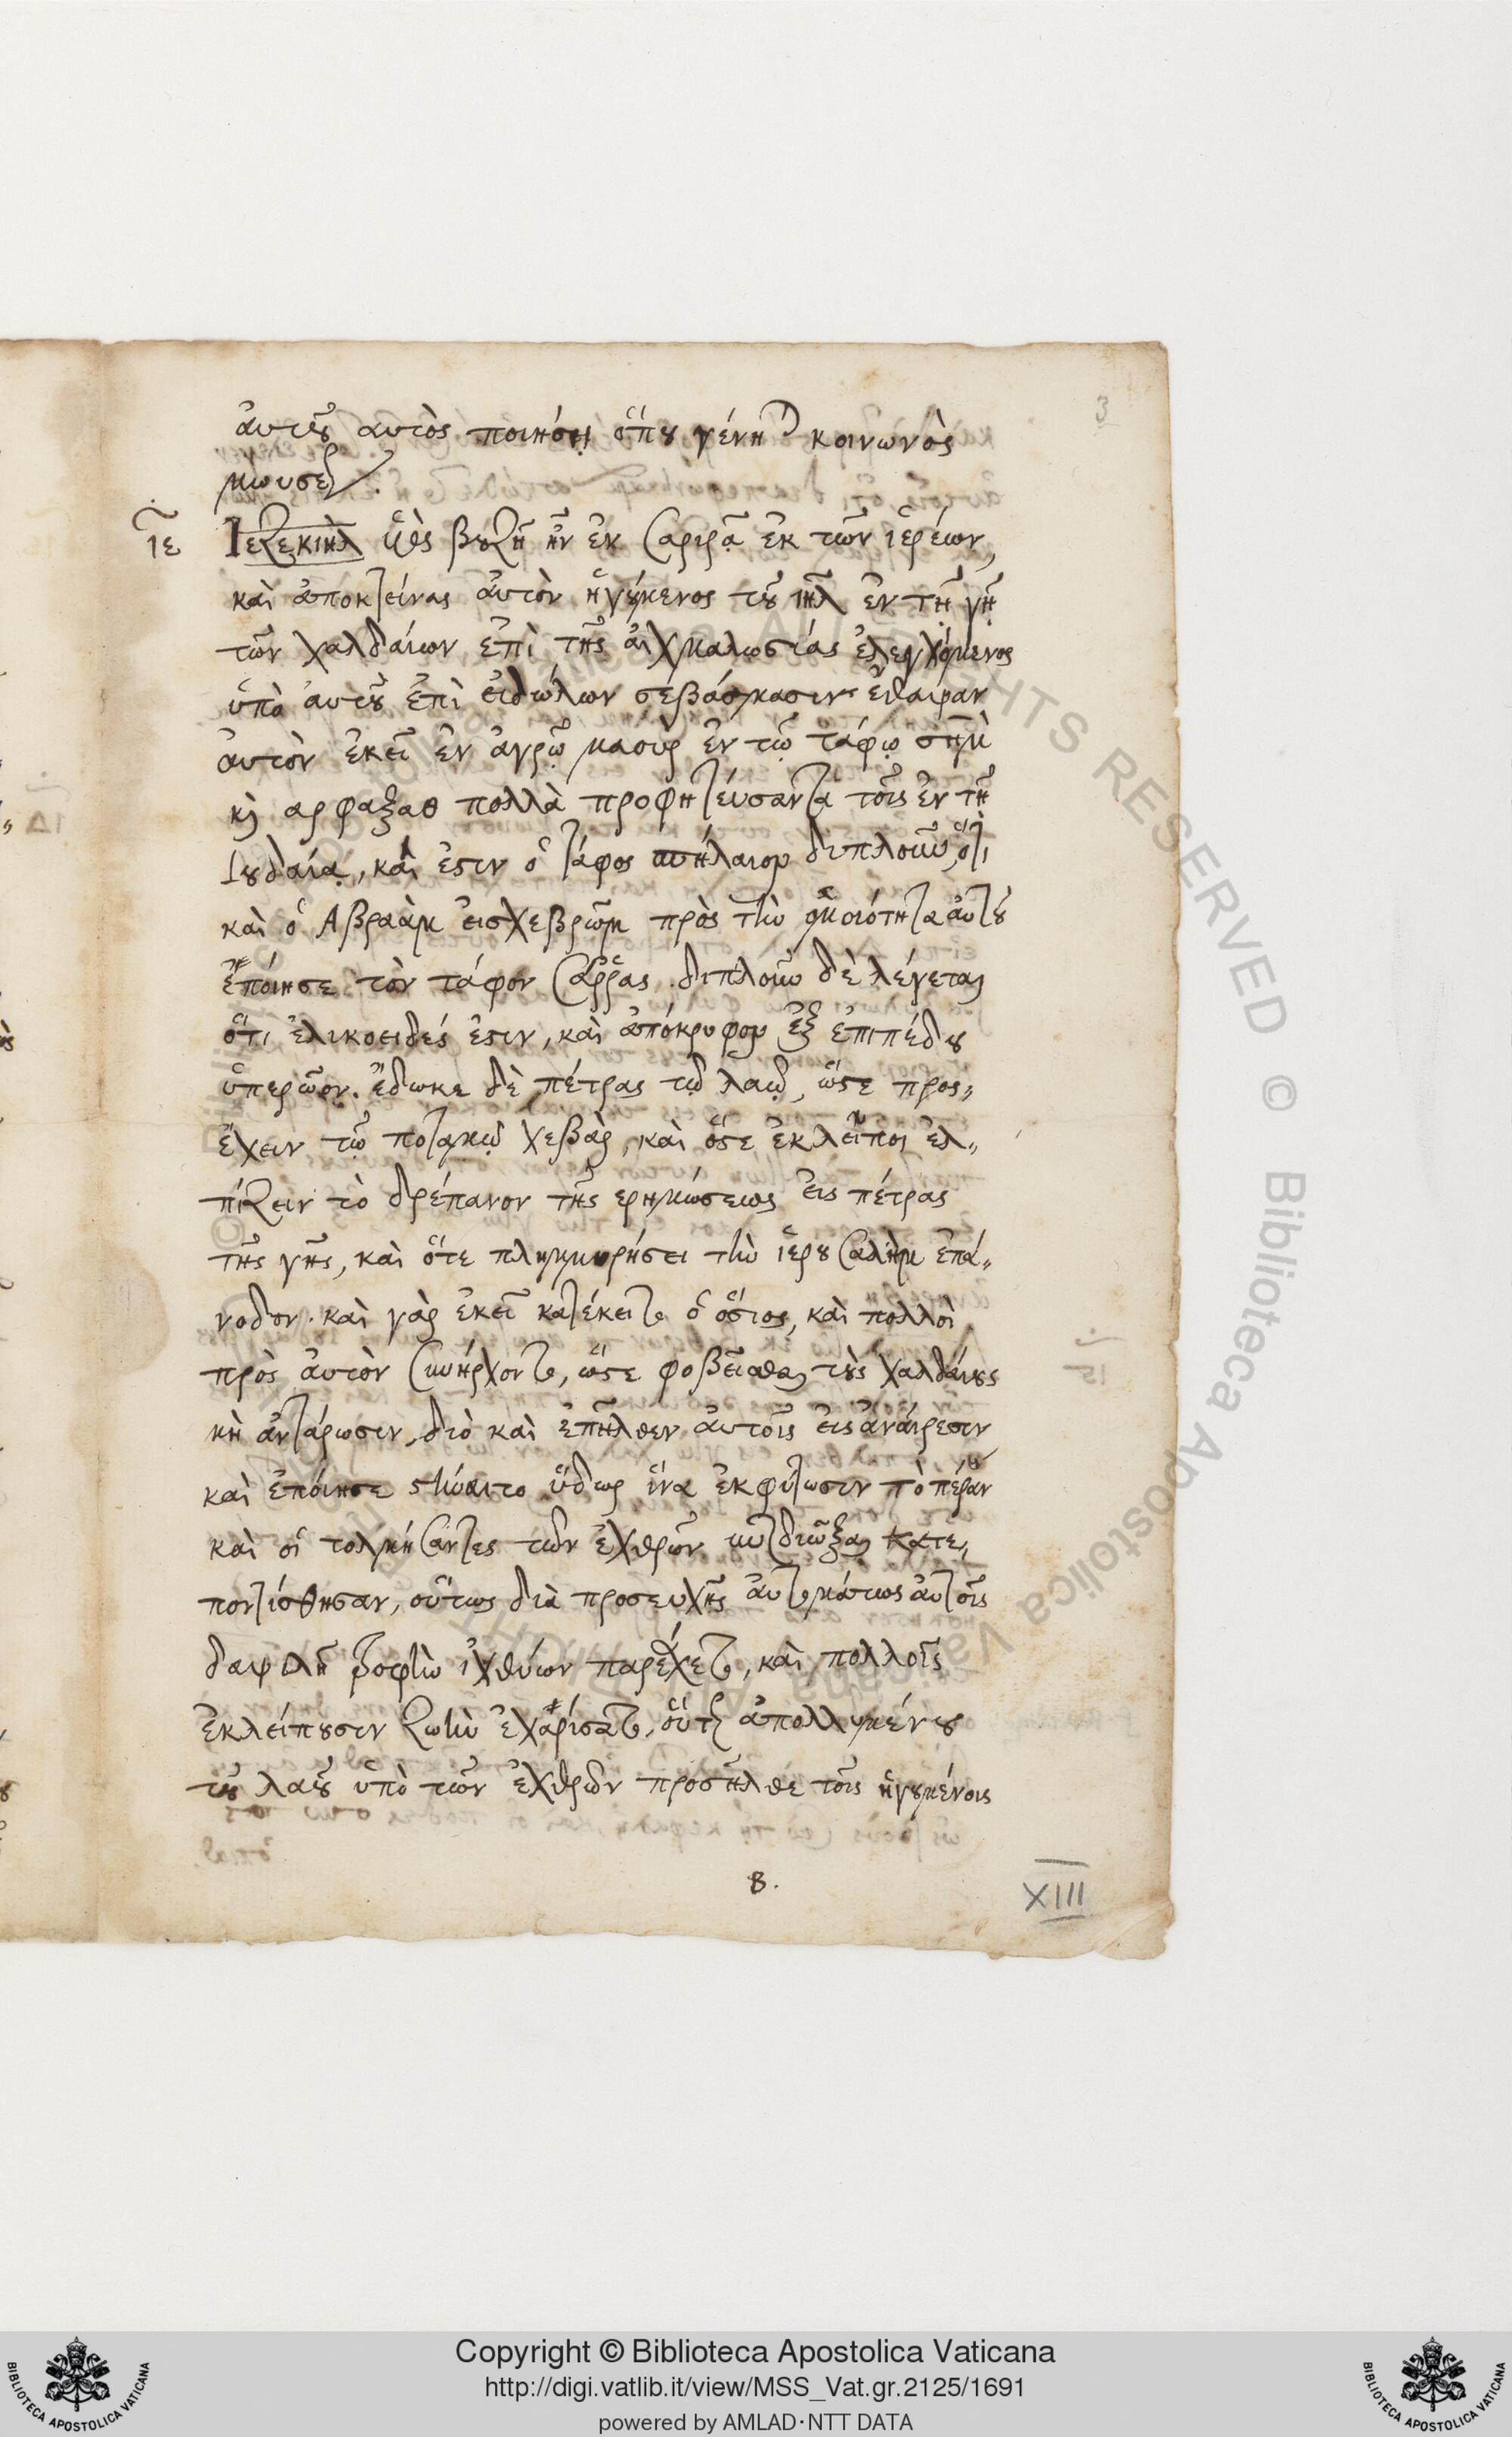 3
ἀυτοῦ αυτὸς ποιήσῃ ὅπου γένηται κοινωνὸς
μωυσεῖ.
ιε Ιεζεκιὴλ υἱὸς βουζῆ ἦν ἐκ σαριρᾷ ἐκ τῶν ἱερέων,
καὶ ἀποκτείνας ἀυτὸν ἡγούμενος τοῦ ιηλ ἐν τῇ γῇ
τῶν χαλδαίων ἐπὶ τῆς ἀιχμαλωσίας ἐλεγχόμενος
ὑπὸ ἀυτοῦ ἐπὶ ἐιδώλων σεβάσμασιν ἔθαψαν
ἀυτὸν ἐκεῖ ἐν ἀγρῷ μαοὺρ ἐν τῷ τάφῳ σὴμ
καὶ αρφαξαθ πολλὰ προφητεύσαντα τοῖς ἐν τῇ
Ιουδαίᾳ, καὶ ἐστιν ὁ τάφος σπήλαιον διπλοῦν, ὅτι
καὶ ὁ Αβραὰμ ἐισχεβρὼμ πρὸς τὴν ὁμοιότητα ἀυτοῦ
ἐποίησε τὸν τάφον σάρρας. διπλοῦν δὲ λέγεται
ὅτι ἑλικοειδές ἐστιν, καὶ ἀπόκρυφον ἐξ ἐπιπέδου
ὑπερῶον. ἔδωκε δὲ πέτρας τῷ λαῷ, ὥστε προσ„
ἔχειν τῷ ποταμῷ χεβὰρ, καὶ ὅτε ἐκλείποι ἐλ„
πίζειν τὸ δρέπανον τῆς ερημώσεως ἐις πέτρας
τῆς γῆς, καὶ ὅτε πλημμυρήσει τὴν ἱερουσαλὴμ ἐπά„
νοδον. καὶ γὰρ ἐκεῖ κατέκειτο ὁ ὅσιος, καὶ πολλοὶ
πρὸς ἀυτὸν συνήρχοντο, ὥστε φοβεῖσθαι τοὺς χαλδάιους
μὴ ἀντάρωσιν, διὸ καὶ ἐπῆλθεν ἀυτοῖς ἐις ἀνάιρεσιν
καὶ ἐποίησε στῆναι το ὕδωρ ἵνα ἐκφύγωσιν τὸ πέραν
καὶ οἱ τολμήσαντες τῶν ἐχθρῶν διῶξαι κατε„
ποντίσθησαν, οὕτως διὰ προσευχῆς ἀυτομάτως ἀυτοῖς
δαψιλῆ τροφὴν ἰχθύων παρέχετο, καὶ πολλοῖς
ἐκλείπουσιν ζωὴν ἐχαρίσατο, οὕτως ἀπολλυμένου
τοῦ λαοῦ ὑπὸ τῶν ἐχθρῶν προσῆλθε τοῖς ἡγουμένοις
β.
XIII
© Biblioteca Apostolica Vaticana. ALL RIGHTS RESERVED
Copyright © Biblioteca Apostolica Vaticana
http://digi.vatlib.it/view/MSS_Vat.gr.2125/1691
powered by AMLAD·NTT DATA
BIBLIOTECA APOSTOLICA VATICANA
BIBLIOTECA APOSTOLICA VATICANA